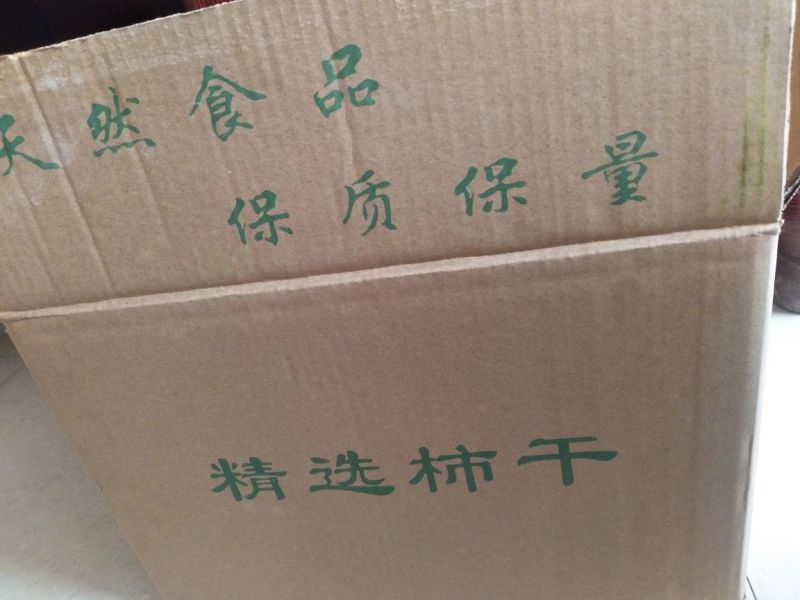 天然食品
保质保量
精选柿干